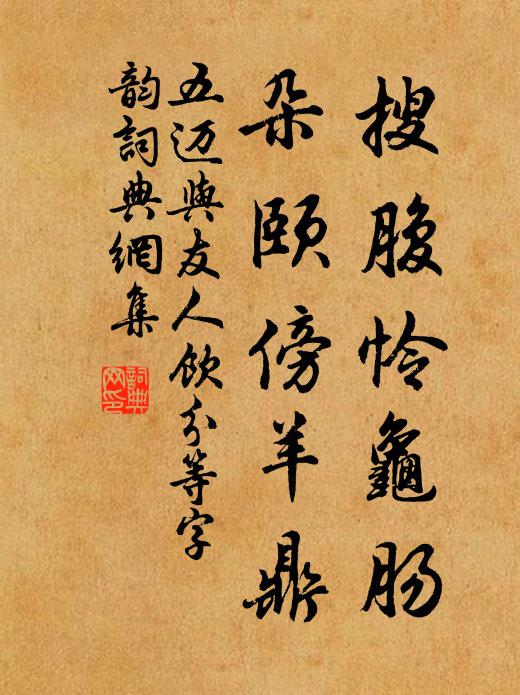 搜腹怜龜肠
朵頤傍羊鼎
五迈與友人飲分等字
韵詞典網集
詞典网印